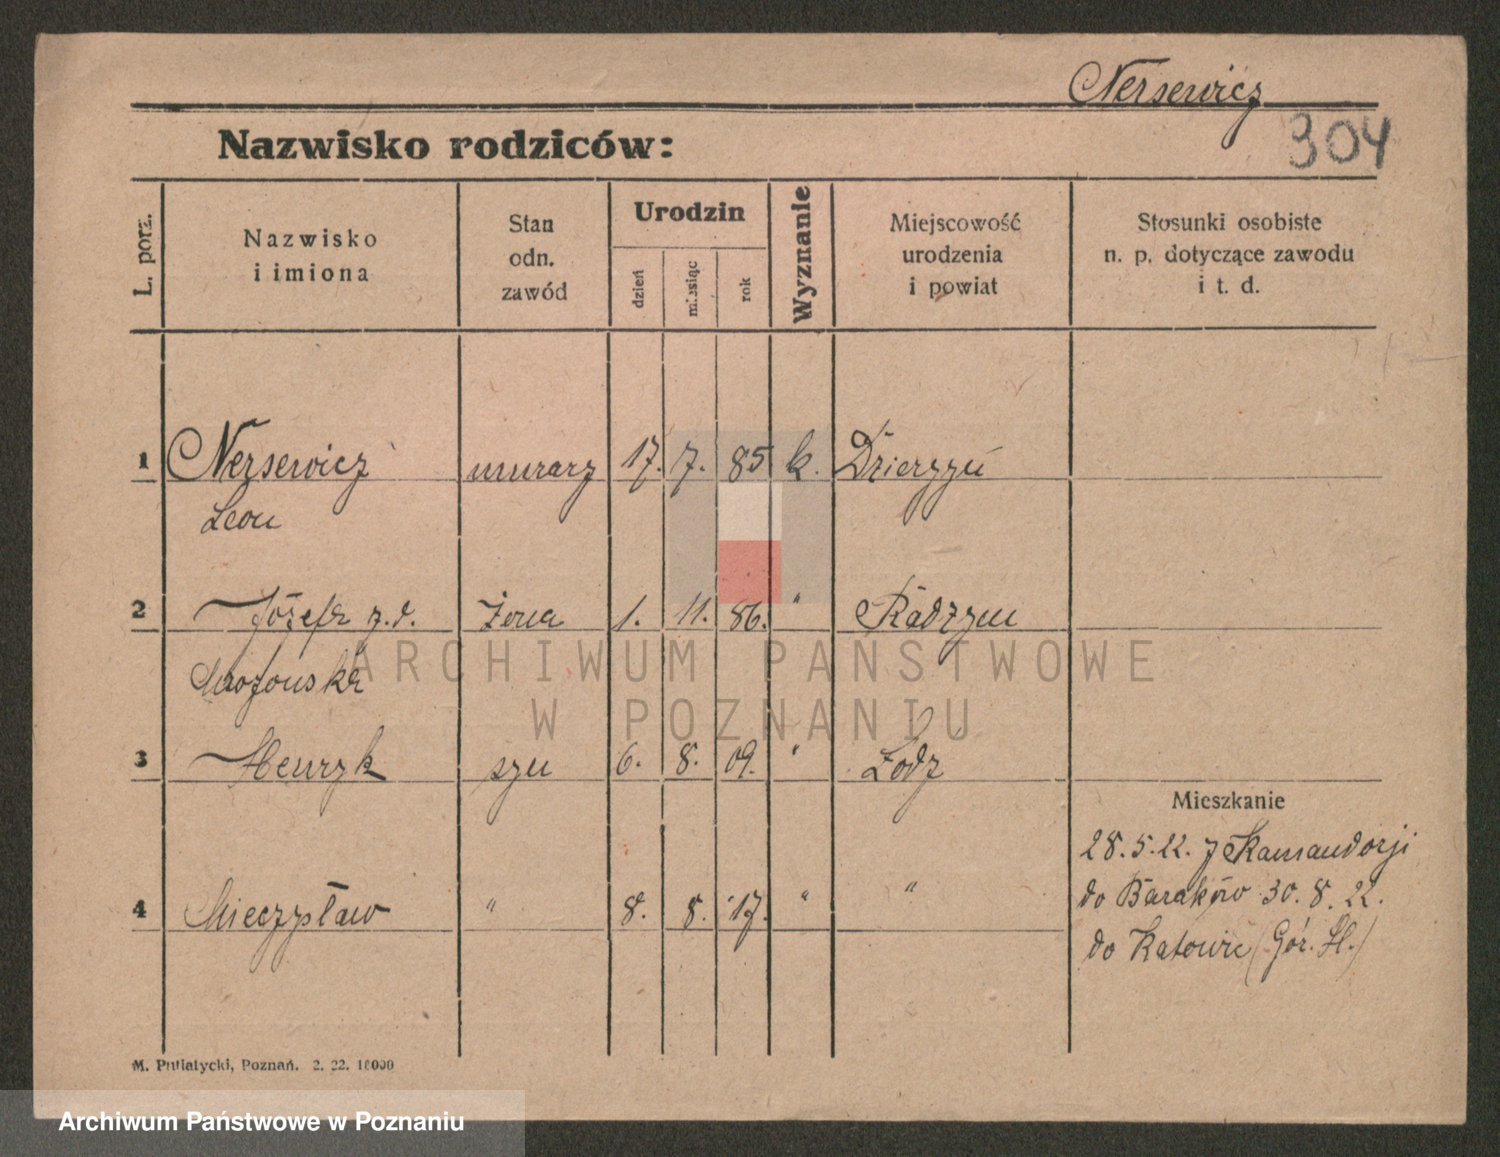 Nersewicz
304
Nazwisko rodziców:
L. porz.
Nazwisko
i imiona
Stan
odn.
zawód
Urodzin
dzień
miesiąc
rok
Wyznanie
Miejscowość
urodzenia
i powiat
Stosunki osobiste
n. p. dotyczące zawodu
i t. d.
1 Nersewicz murarz 17. 7. 85 k. Dzierzyń
Leon
2 Józefa z.d. żona 1. 11. 86. " Radzyn
3 Henryk syn 6. 8. 09. " Łodz
Mieszkanie
28.5.22. z Kamandorji
4 Mieczysław " 8. 8. 17. " "
do Baraków 30.8.22.
do Katowic (Gór. Śl.)
M. Putiatycki, Poznań. 2. 22. 10000
ARCHIWUM PAŃSTWOWE
W POZNANIU
Archiwum Państwowe w Poznaniu